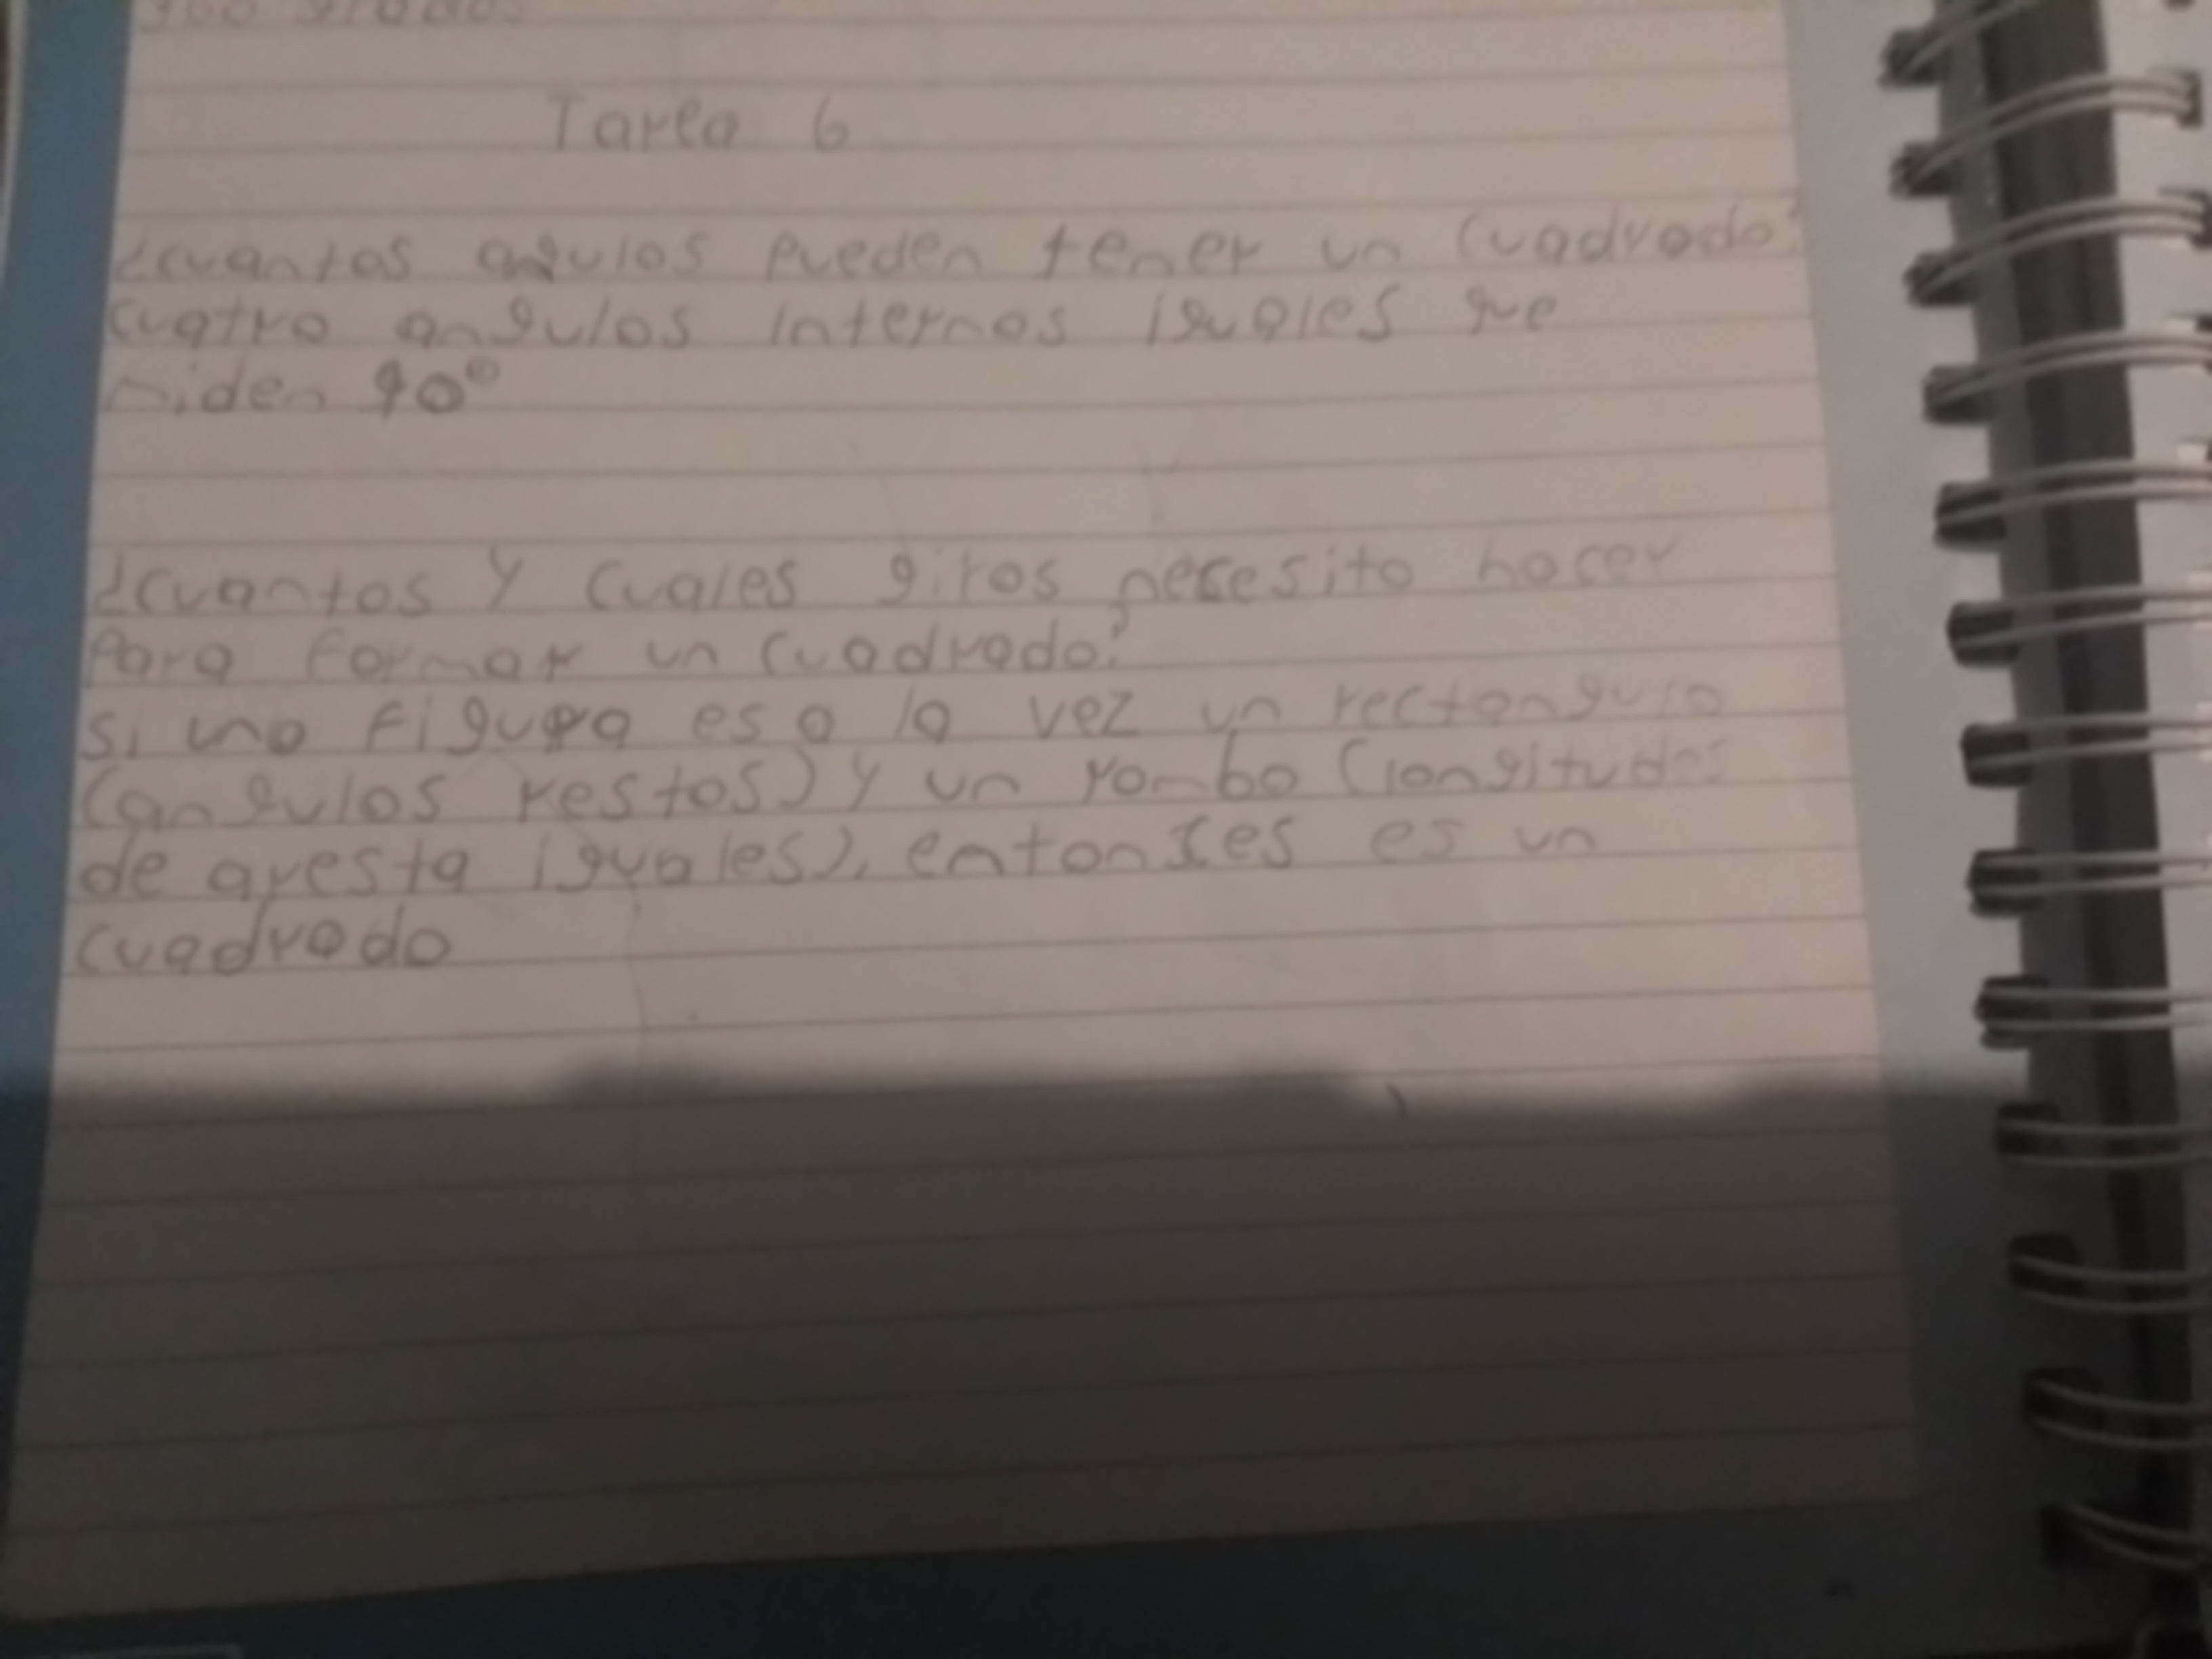 360 grados
Tarea 6
¿cuantos angulos pueden tener un cuadrado?
cuatro angulos internos iguales que
miden 90°
¿cuantos y cuales giros necesito hacer
para formar un cuadrado?
si una figura es a la vez un rectangulo
(angulos restos) y un rombo (longitudes
de aresta iguales), entonses es un
cuadrado